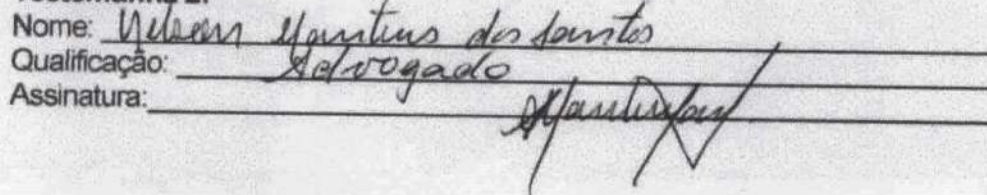 Testemunha 2:
Nome: Nelson Martins dos Santos
Qualificação: Advogado
Assinatura: